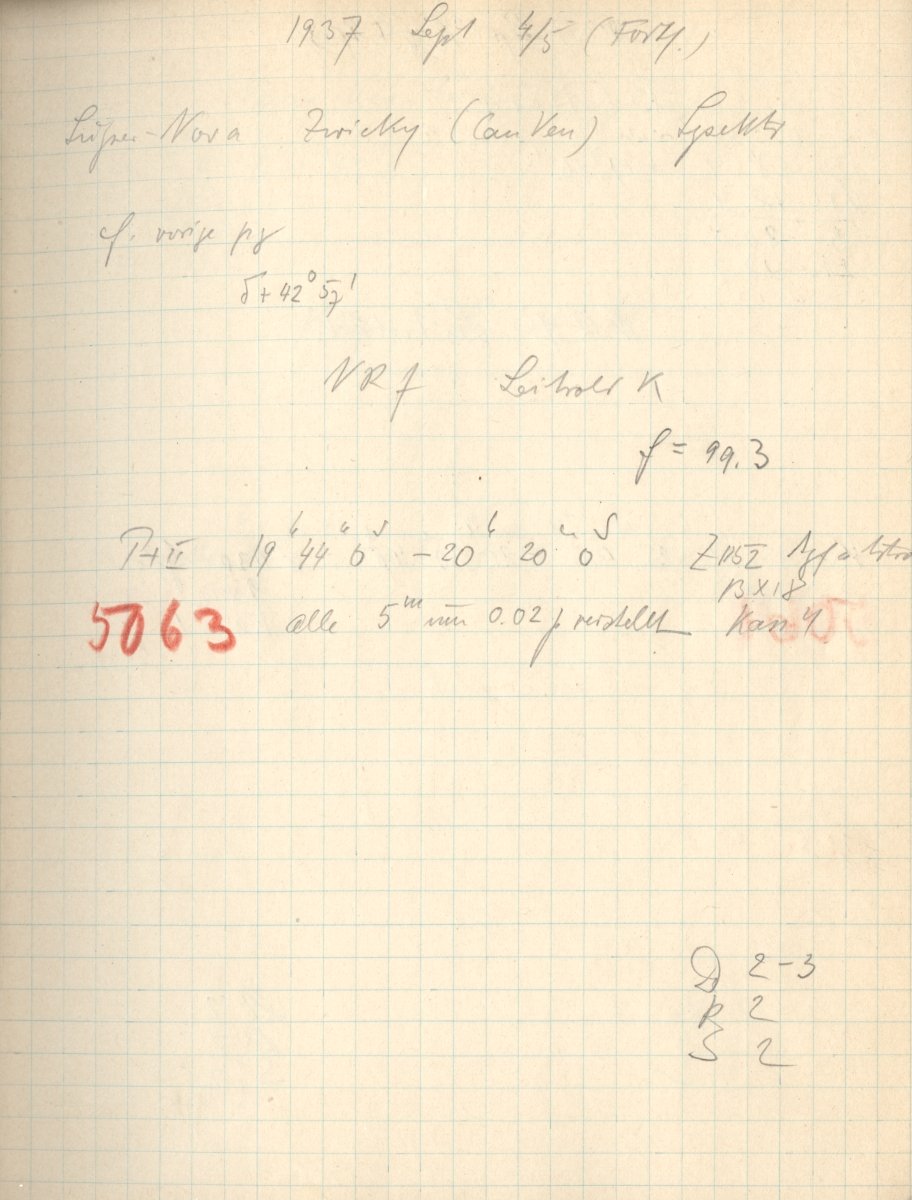 1937 Sept 4/5 (Forts.)
Super-Nova Zwicky (Can Ven) Spektr
cf. vorige pg
δ+42° 57'
NR f Leitrohr K
f = 99.3
P+II 19ʰ 44ᵐ 0ˢ – 20ʰ 20ᵐ 0ˢ
B X 18
5063 alle 5ᵐ um 0.02 verstellt Kass 4
D 2-3
R 2
S 2